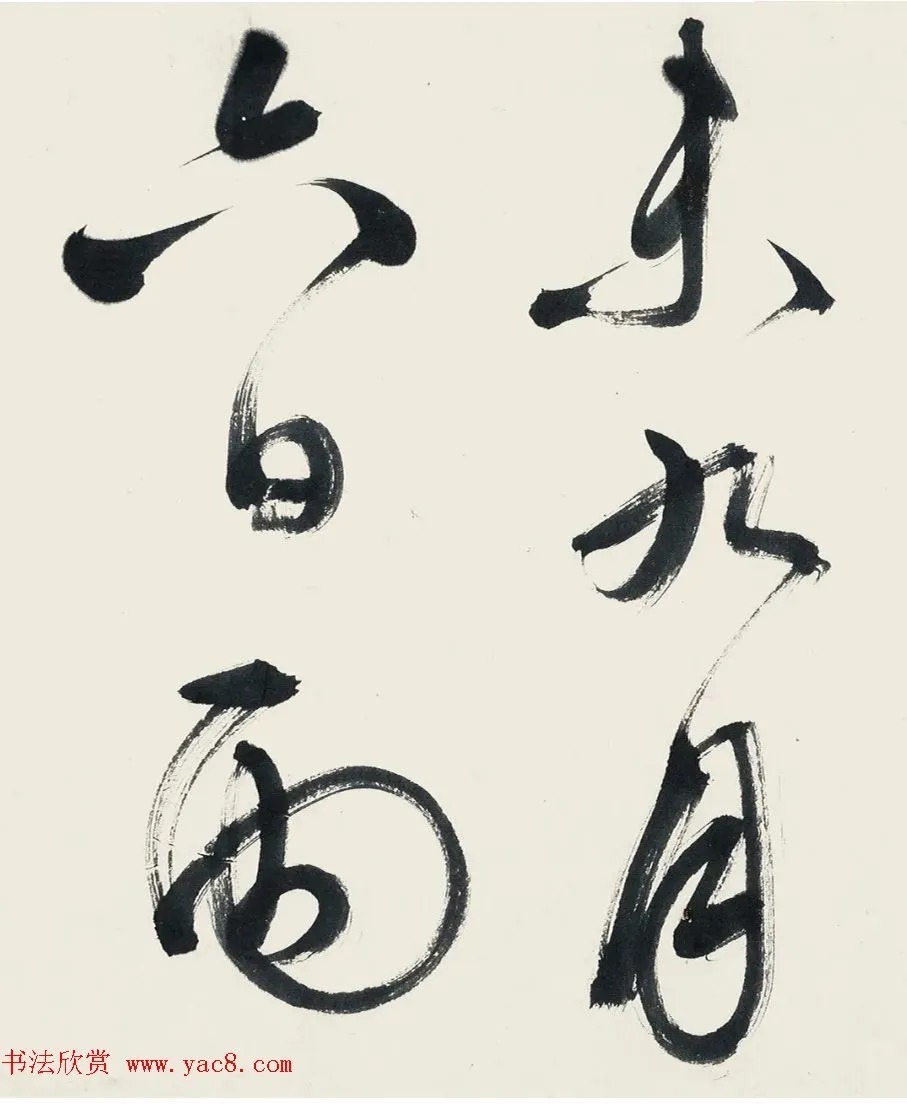 未九月
六日雨
书法欣赏 www.yac8.com